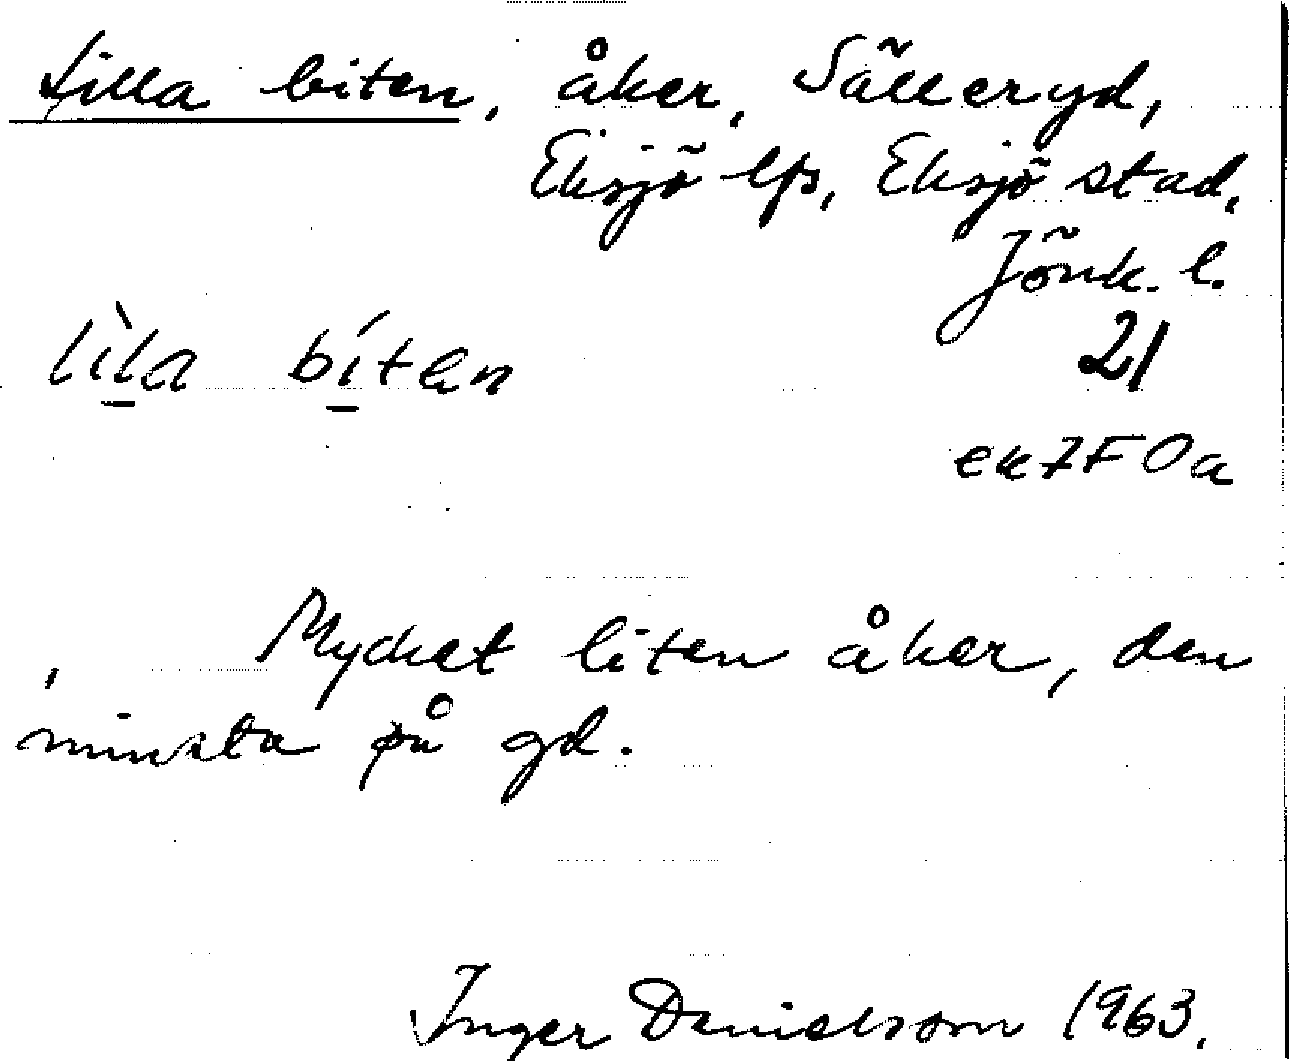 Lilla biten, åker, Sälleryd,
Eksjö lfs, Eksjö stad,
Jönk. l.
lìla bíten
21
ek7F0a
Mycket liten åker, den
minsta på gd.
Inger Danielsson 1963.